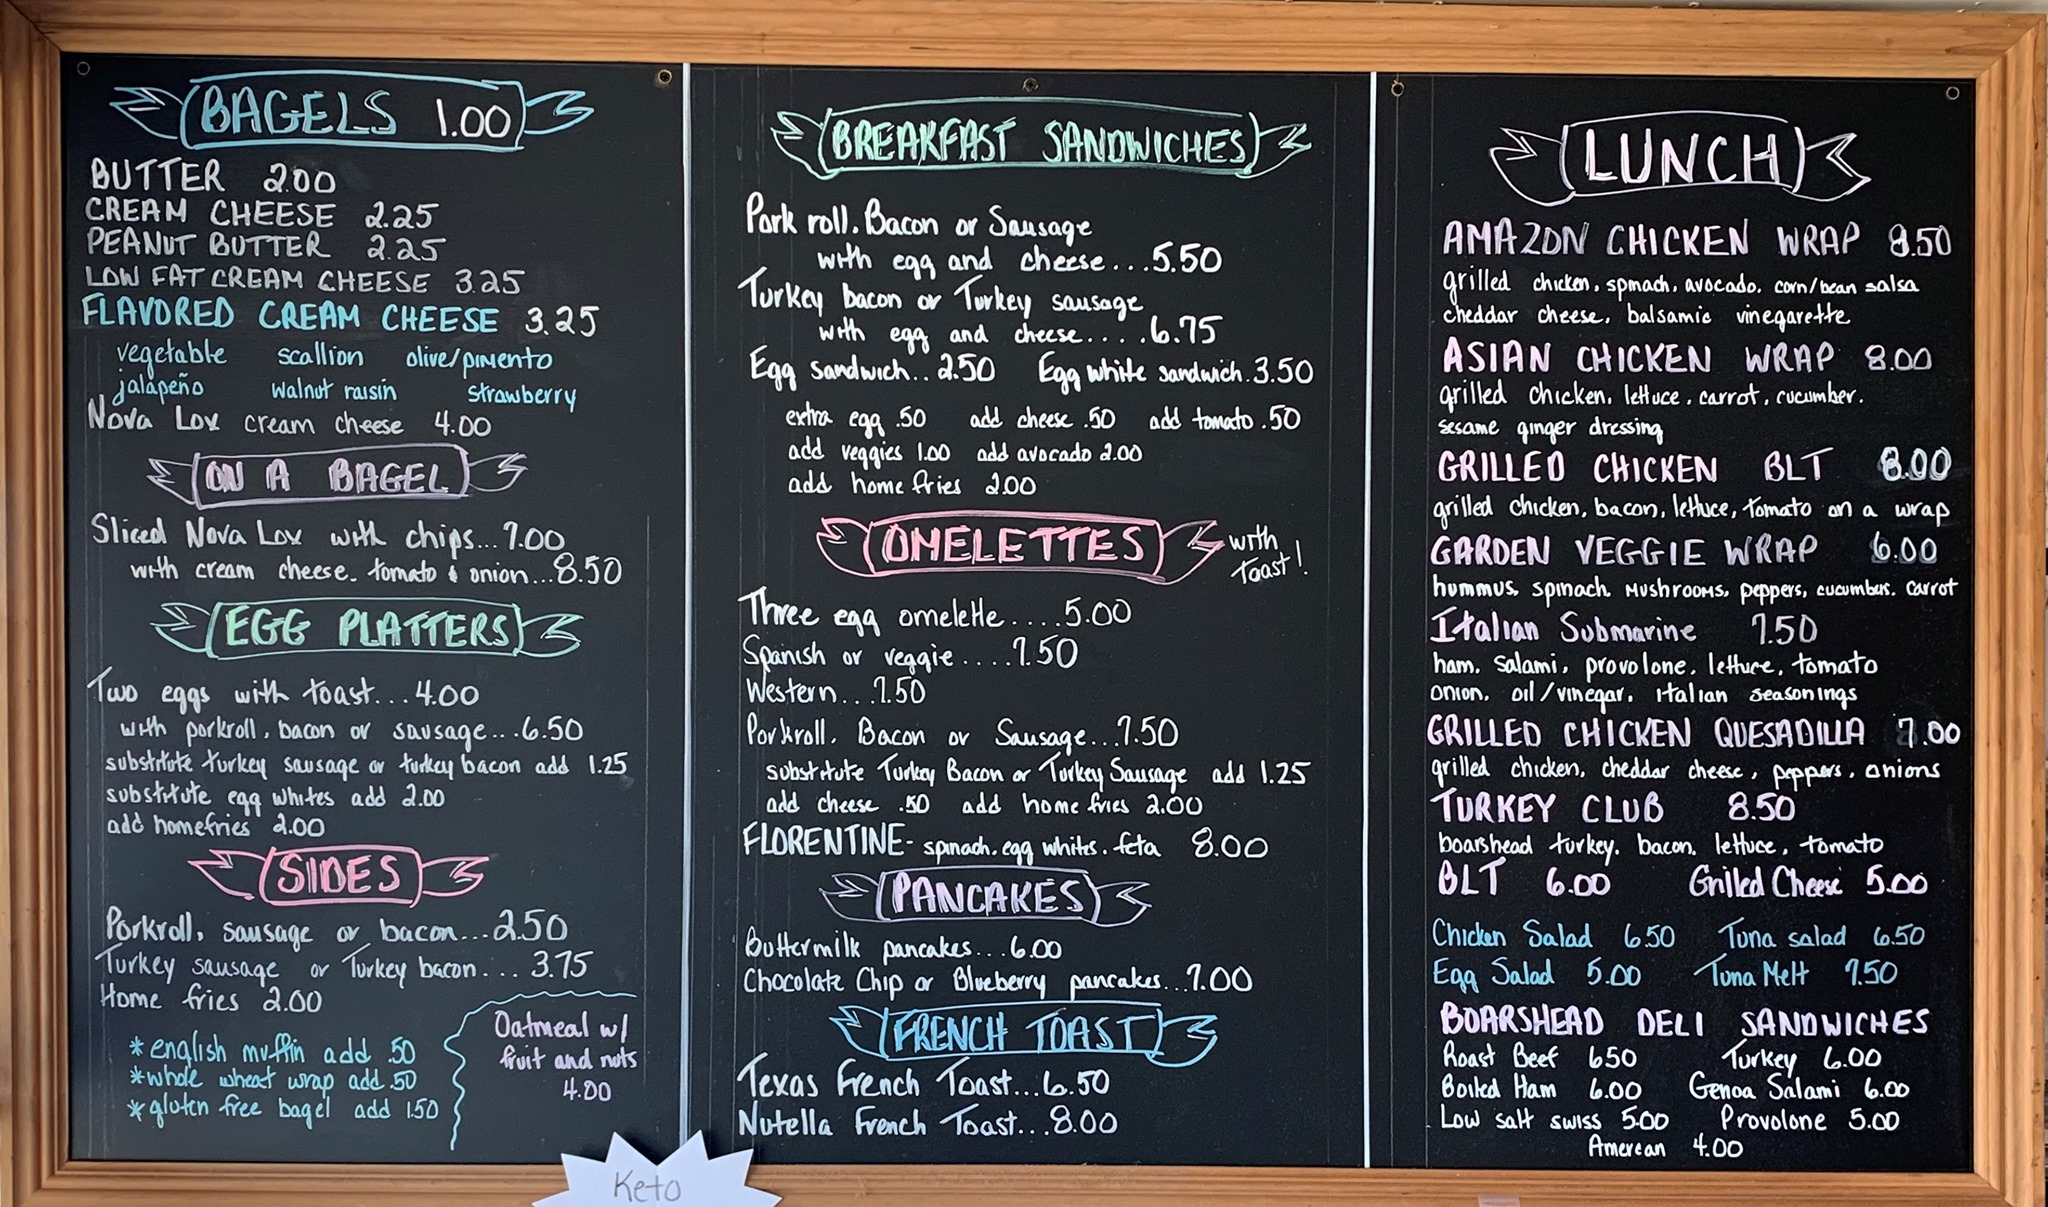 BAGELS 1.00
BUTTER 2.00
CREAM CHEESE 2.25
PEANUT BUTTER 2.25
LOW FAT CREAM CHEESE 3.25
FLAVORED CREAM CHEESE 3.25
vegetable scallion olive/pimento
jalapeño walnut raisin strawberry
Nova Lox cream cheese 4.00
ON A BAGEL
Sliced Nova Lox with chips...7.00
with cream cheese. tomato & onion...8.50
EGG PLATTERS
Two eggs with toast...4.00
with porkroll, bacon or sausage...6.50
substitute turkey sausage or turkey bacon add 1.25
substitute egg whites add 2.00
add homefries 2.00
SIDES
Porkroll, sausage or bacon...2.50
Turkey sausage or Turkey bacon... 3.75
Home fries 2.00
*english muffin add .50
*whole wheat wrap add .50
*gluten free bagel add 1.50
Oatmeal w/
fruit and nuts
4.00
Keto
BREAKFAST SANDWICHES
Pork roll. Bacon or Sausage
with egg and cheese...5.50
Turkey bacon or Turkey sausage
with egg and cheese....6.75
Egg sandwich..2.50 Egg white sandwich.3.50
extra egg .50 add cheese .50 add tomato .50
add veggies 1.00 add avocado 2.00
add home fries 2.00
OMELETTES with
toast!
Three egg omelette....5.00
Spanish or veggie....7.50
Western...7.50
Porkroll. Bacon or Sausage...7.50
substitute Turkey Bacon or Turkey Sausage add 1.25
add cheese .50 add home fries 2.00
FLORENTINE- spinach. egg whites. feta 8.00
PANCAKES
Buttermilk pancakes...6.00
Chocolate Chip or Blueberry pancakes...7.00
FRENCH TOAST
Texas French Toast...6.50
Nutella French Toast...8.00
LUNCH
AMAZON CHICKEN WRAP 8.50
grilled chicken, spinach, avocado, corn/bean salsa
cheddar cheese, balsamic vinegarette
ASIAN CHICKEN WRAP 8.00
grilled chicken, lettuce, carrot, cucumber.
sesame ginger dressing
GRILLED CHICKEN BLT 8.00
grilled chicken, bacon, lettuce, tomato on a wrap
GARDEN VEGGIE WRAP 6.00
hummus, spinach, mushrooms, peppers, cucumber, carrot
Italian Submarine 7.50
ham, salami, provolone, lettuce, tomato
onion, oil/vinegar, italian seasonings
GRILLED CHICKEN QUESADILLA 7.00
grilled chicken, cheddar cheese, peppers, onions
TURKEY CLUB 8.50
boarshead turkey, bacon, lettuce, tomato
BLT 6.00 Grilled Cheese 5.00
Chicken Salad 6.50 Tuna salad 6.50
Egg Salad 5.00 Tuna Melt 7.50
BOARSHEAD DELI SANDWICHES
Roast Beef 6.50 Turkey 6.00
Boiled Ham 6.00 Genoa Salami 6.00
Low salt swiss 5.00 Provolone 5.00
Amerean 4.00